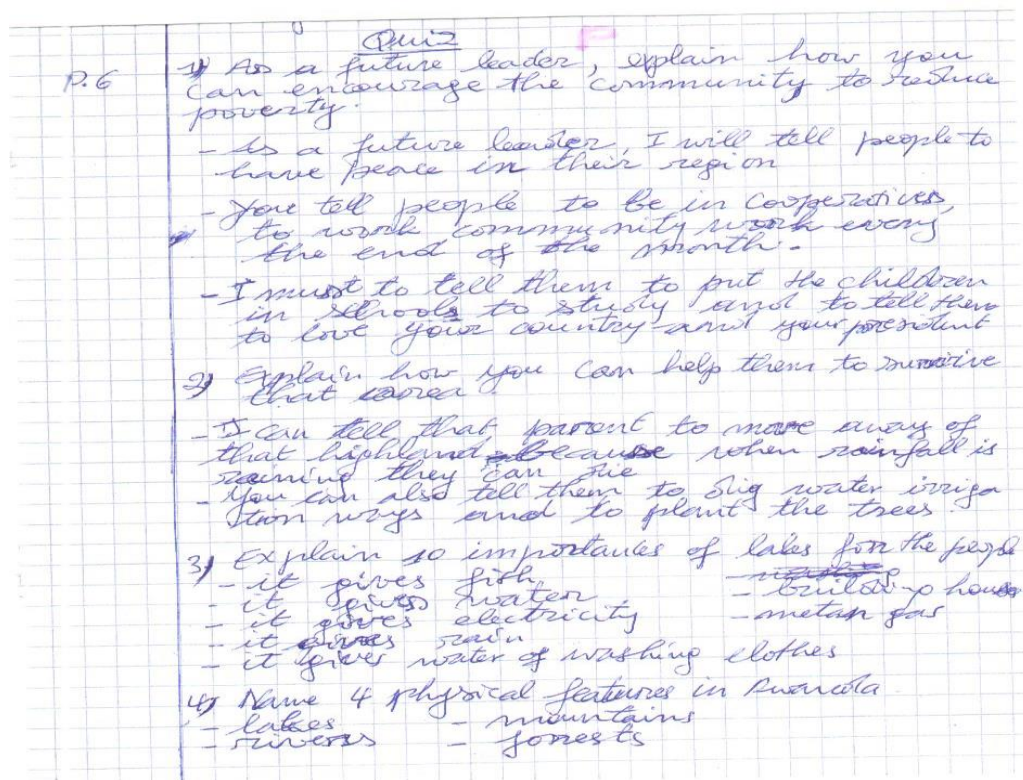 Quiz
P.6 1) As a future leader, explain how you
can encourage the community to reduce
poverty.
- As a future leader, I will tell people to
have peace in their region
- You tell people to be in cooperatives,
to work community work every
the end of the month.
- I must to tell them to put the children
in schools to study and to tell them
to love your country and your president
2) Explain how you can help them to survive
that area.
- I can tell that parent to move away of
that highland because when rainfall is
raining they can die
- You can also tell them to dig water irriga
tion ways and to plant the trees.
3) Explain 10 importances of lakes for the people
- it gives fish
- it gives water - building houses
- it gives electricity - metan gas
- it gives rain
- it gives water of washing clothes
4) Name 4 physical features in Rwanda
- lakes - mountains
- rivers - forrests